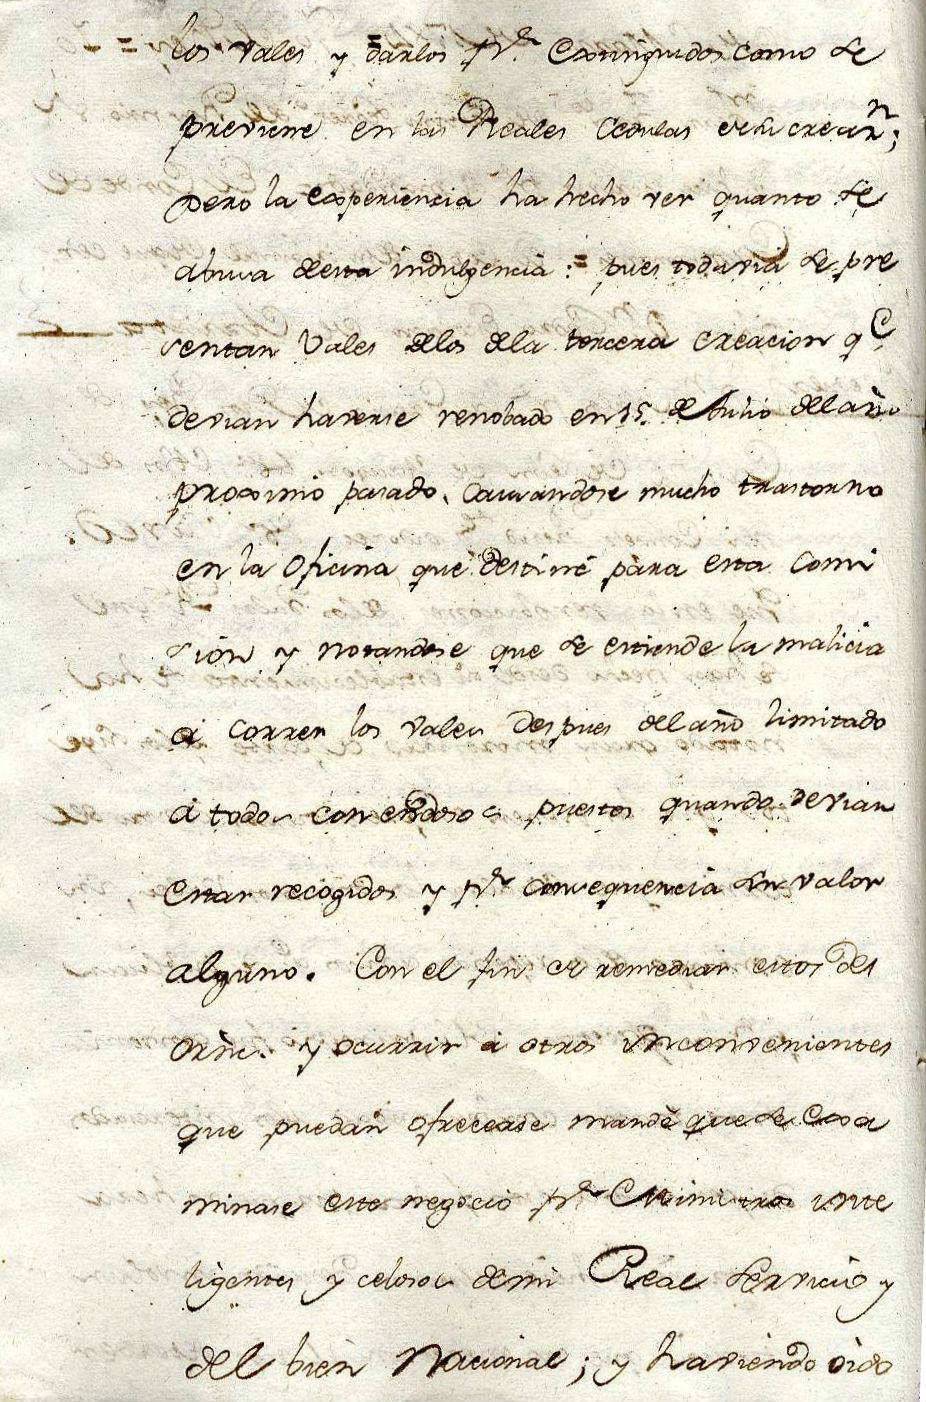 los Vales y darlos pr. extinguidos como se
previene en las Reales Cedulas de su crean.;
pero la experiencia ha hecho ver quanto se
abusa desta indulgencia: = pues todavia se pre
sentan Vales delos dela tercera creacion qe.
devian haverse renobado en 15. de Julio del año
proximo pasado, causandose mucho trastorno
en la Oficina que destiné para esta Comi
sion y notandose que se estiende la malicia
á correr los vales despues del año limitado
á todos con endosos puestos quando devian
estar recogidos y pr. consequencia sin valor
alguno. Con el fin de remediar estos des
ordns. y ocurrir á otros inconvenientes
que puedan ofrecerse mandé que se Exa
minase este negocio pr. Ministros inte
ligentes y celosos de mi Real servicio y
del bien Nacional; y haviendo oido